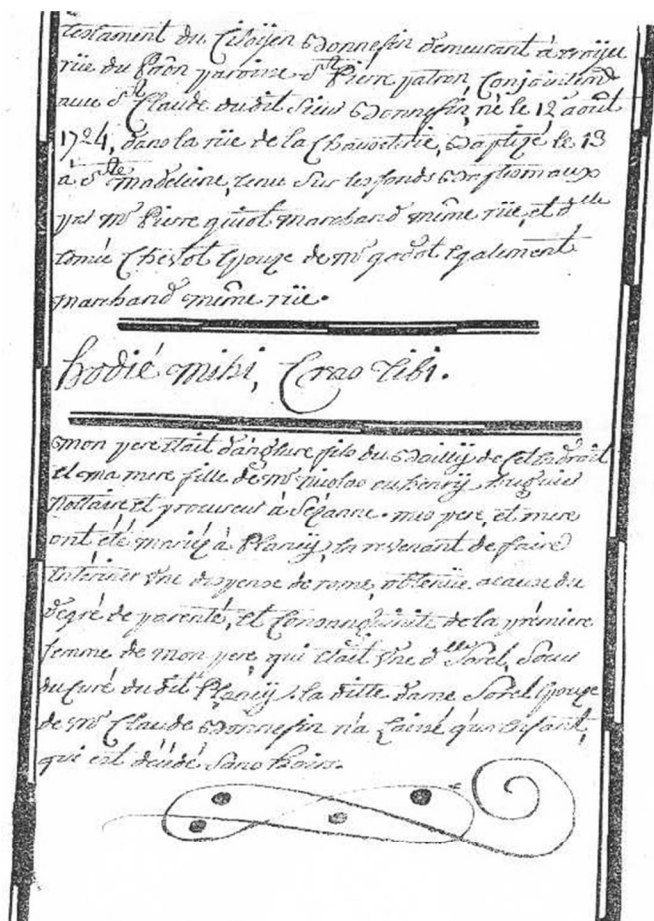 testament du Citoyen Bonnefin demeurant à troyes
rüe du Paôn paroisse St Pierre patron, Conjointemt
avec St Claude dudit Sieur Bonnefin, né le 12 août
1724, dans la rüe de la baptizé le 13
à Ste madeleine, tenu sur les fonds Baptismaux
par mr Pierre guiot marchand même rüe, et dlle
Chevot Epouze de mr godot Egalement
marchand même rüe.
hodié mihi, Cras tibi.
mon pere était d'anglure fils du Bailly de Cet Endroit
et ma mere fille de mr nicolas ou henry huguier
Nottaire et procureur à Sézanne. mes pere, et mere
ont été mariéz à Plancy, en revenant de faire
Entériner Une dispense de rome, obtenüe acause du
dégré de parenté, et Consanguinité de la prémiere
femme de mon pere, qui était Une dlle Sorel, Soeur
du Curé dudit Plancy, la ditte dame Sorel Epouze
de mr Claude Bonnefin n'a Laissé qu'un Enfant,
qui est décédé Sans hoirs.